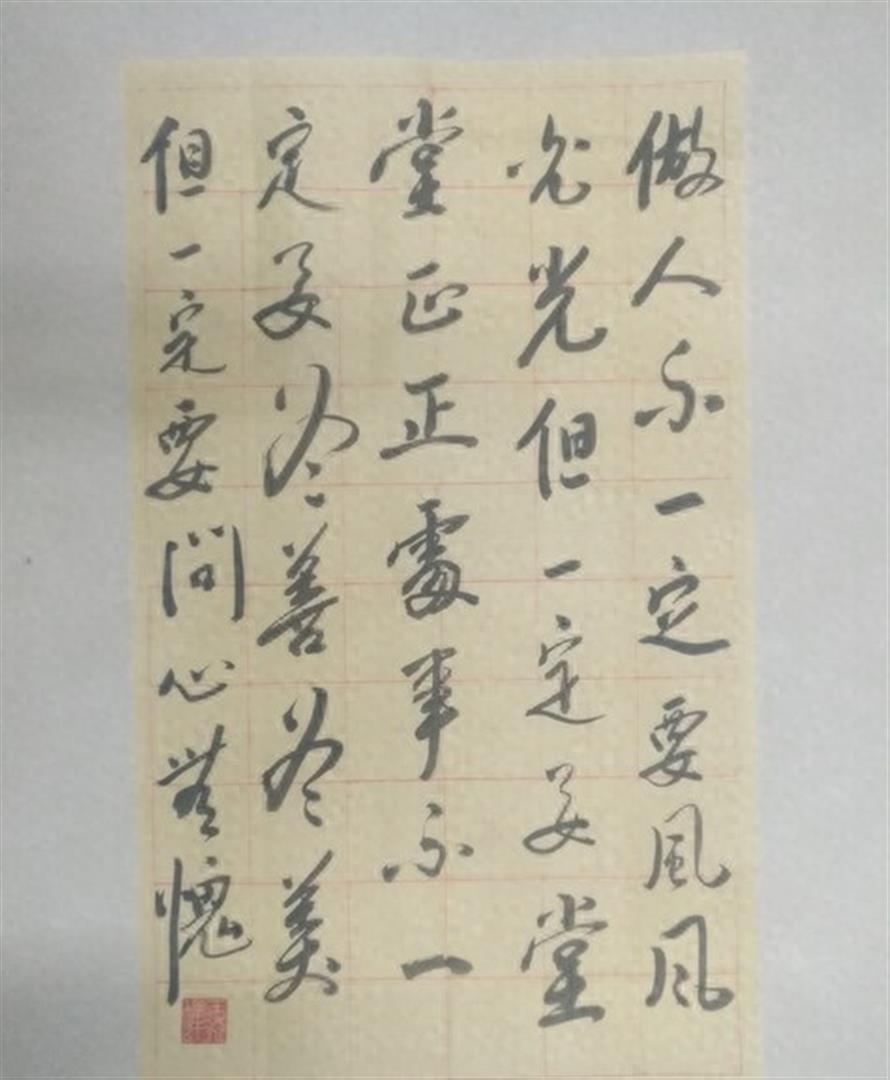 做人不一定要風风
光光但一定要堂
堂正正處事不一
定要尽善尽美
但一定要問心無愧